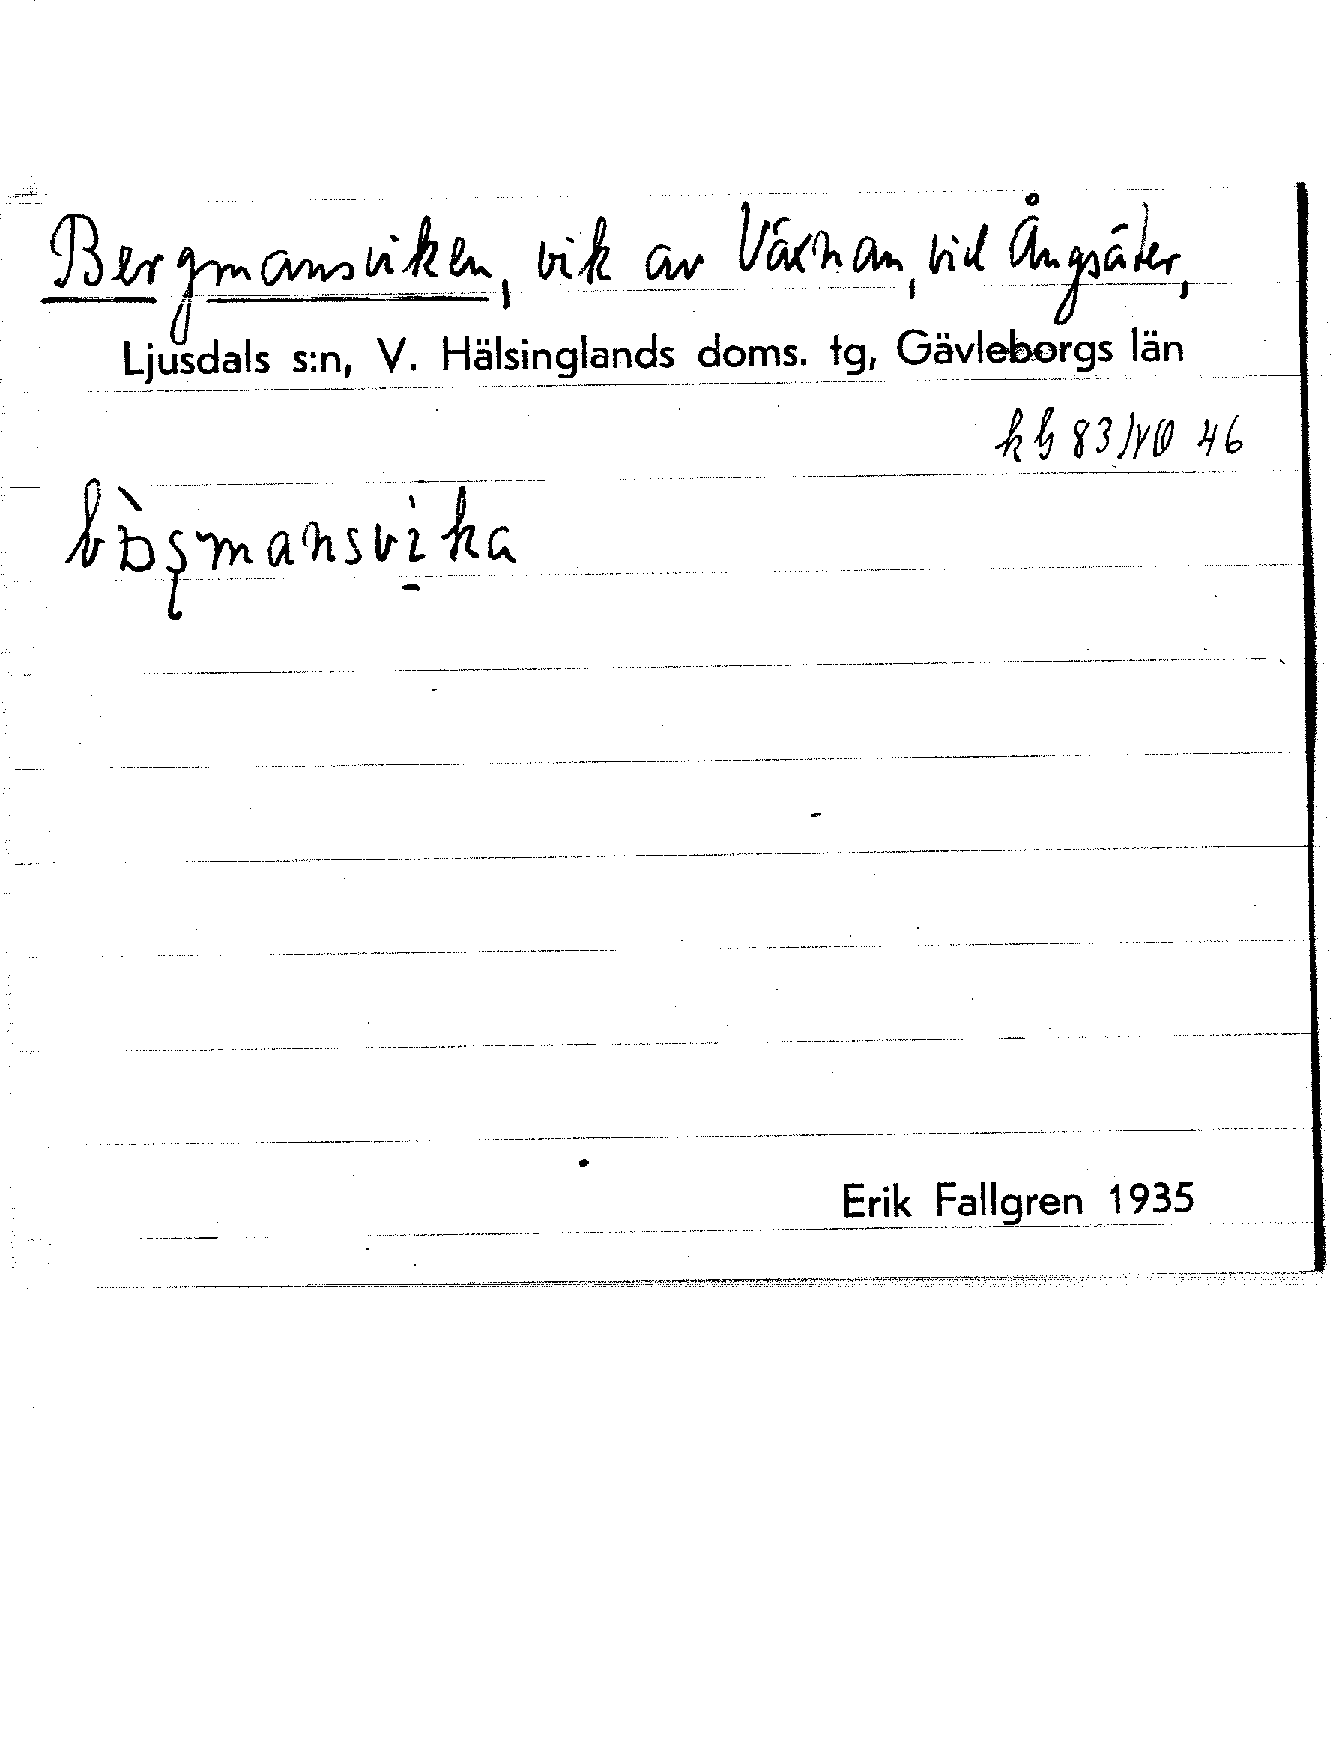 Bergmansviken, vik av Växnan, vid Ångsäter,
Ljusdals s:n, V. Hälsinglands doms. tg, Gävleborgs län
kb 83 NO 46
Erik Fallgren 1935